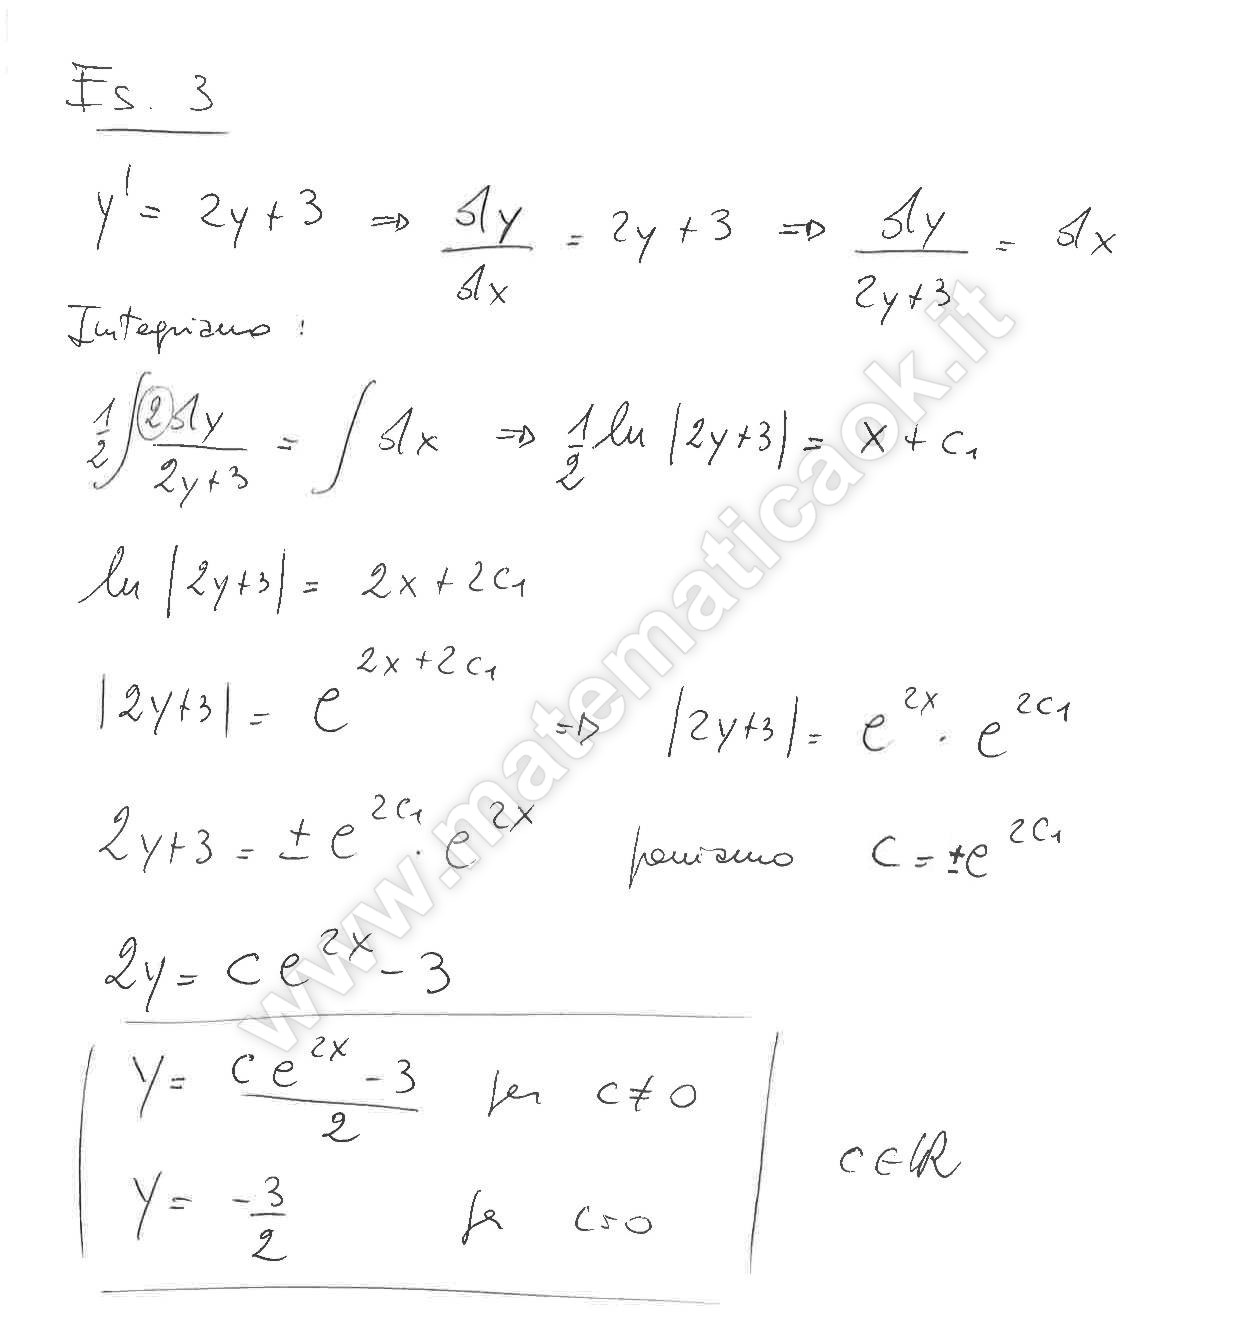 Es. 3
y' = 2y+3 ⇒ dy/dx = 2y+3 ⇒ dy/(2y+3) = dx
Integriamo :
1/2 ∫ 2dy/(2y+3) = ∫ dx ⇒ 1/2 ln |2y+3| = x + c₁
ln |2y+3| = 2x + 2c₁
|2y+3| = e^(2x+2c₁) ⇒ |2y+3| = e^(2x) · e^(2c₁)
2y+3 = ± e^(2c₁) · e^(2x) poniamo c = ±e^(2c₁)
2y = c e^(2x) - 3
y = (c e^(2x) - 3)/2 per c ≠ 0
y = -3/2 per c=0
c∈ℝ
www.matematicaok.it